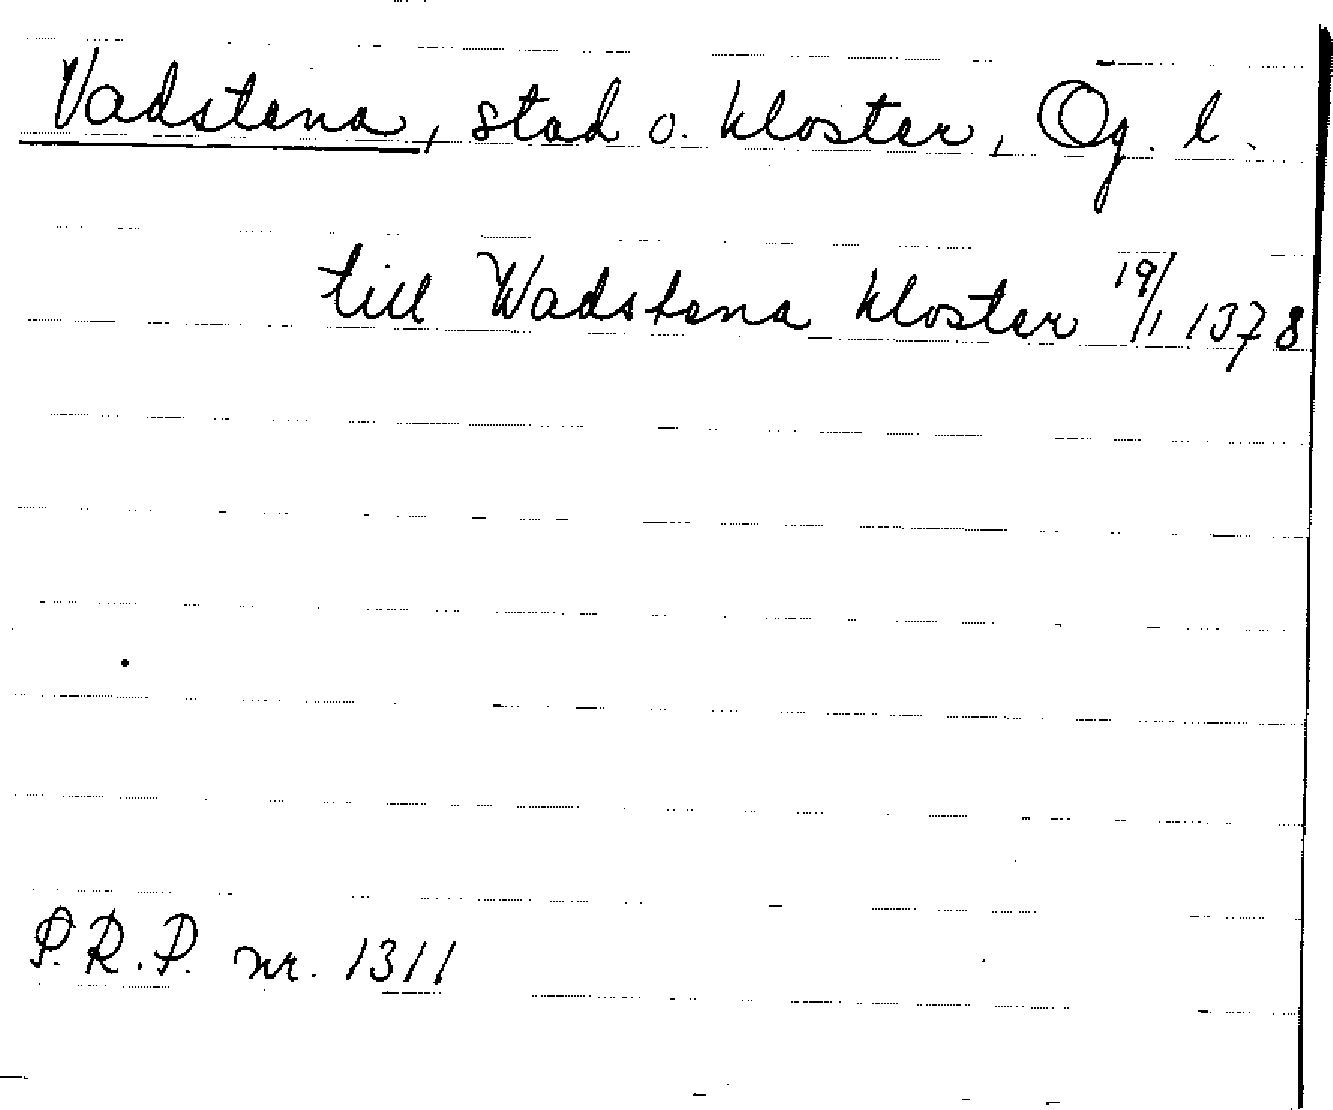 Vadstena, stad o. kloster, Ög. l.
till Wadstena kloster 19/1 1378
P.R.P. nr. 1311